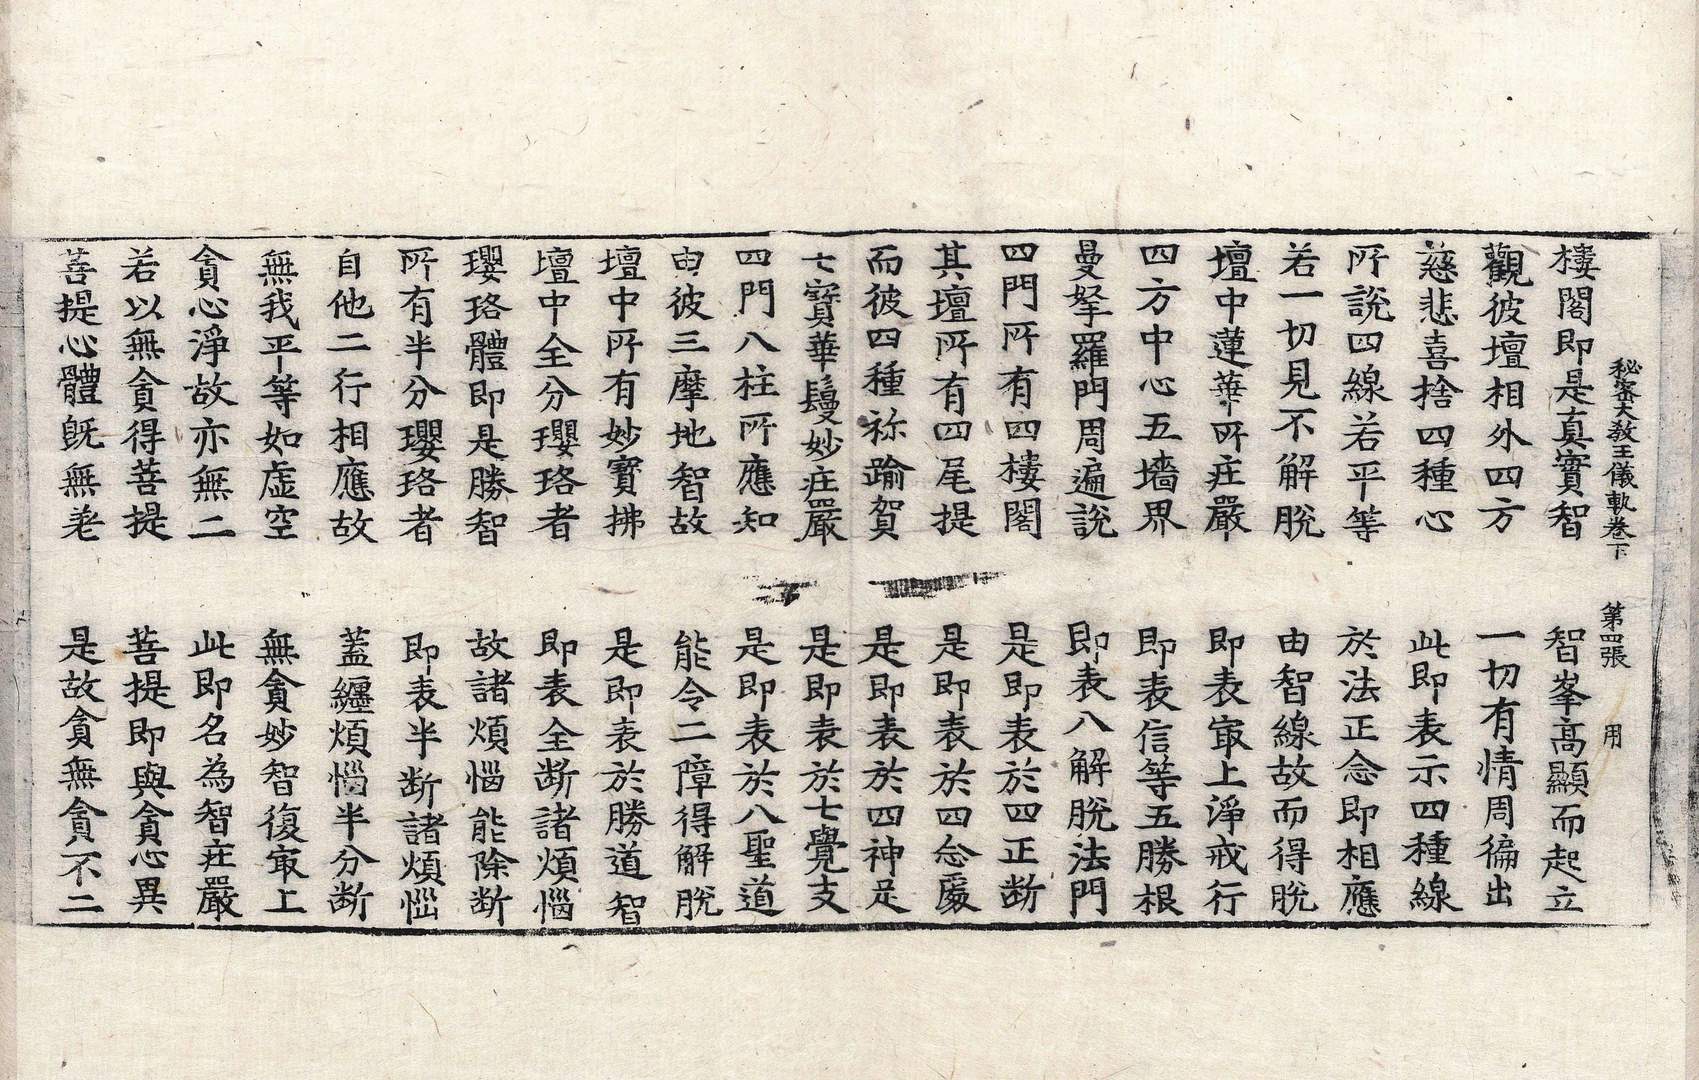 秘密大教王儀軌卷下　第四張　用
樓閣即是真實智　智峯高顯而起立
觀彼壇相外四方　一切有情周徧出
慈悲喜捨四種心　此即表示四種線
所說四線若平等　於法正念即相應
若一切見不解脫　由智線故而得脫
壇中蓮華所莊嚴　即表㝡上淨戒行
四方中心五墻界　即表信等五勝根
曼拏羅門周遍說　即表八解脫法門
四門所有四樓閣　是即表於四正断
其壇所有四尾提　是即表於四念處
而彼四種祢踰賀　是即表於四神足
七寶華鬘妙莊嚴　是即表於七覺支
四門八柱所應知　是即表於八聖道
由彼三摩地智故　能令二障得解脫
壇中所有妙寶拂　是即表於勝道智
壇中全分瓔珞者　即表全断諸煩惱
瓔珞體即是勝智　故諸煩惱能除断
所有半分瓔珞者　即表半断諸煩惱
自他二行相應故　蓋纏煩惱半分断
無我平等如虛空　無貪妙智復㝡上
貪心淨故亦無二　此即名為智莊嚴
若以無貪得菩提　菩提即與貪心異
菩提心體旣無差　是故貪無貪不二